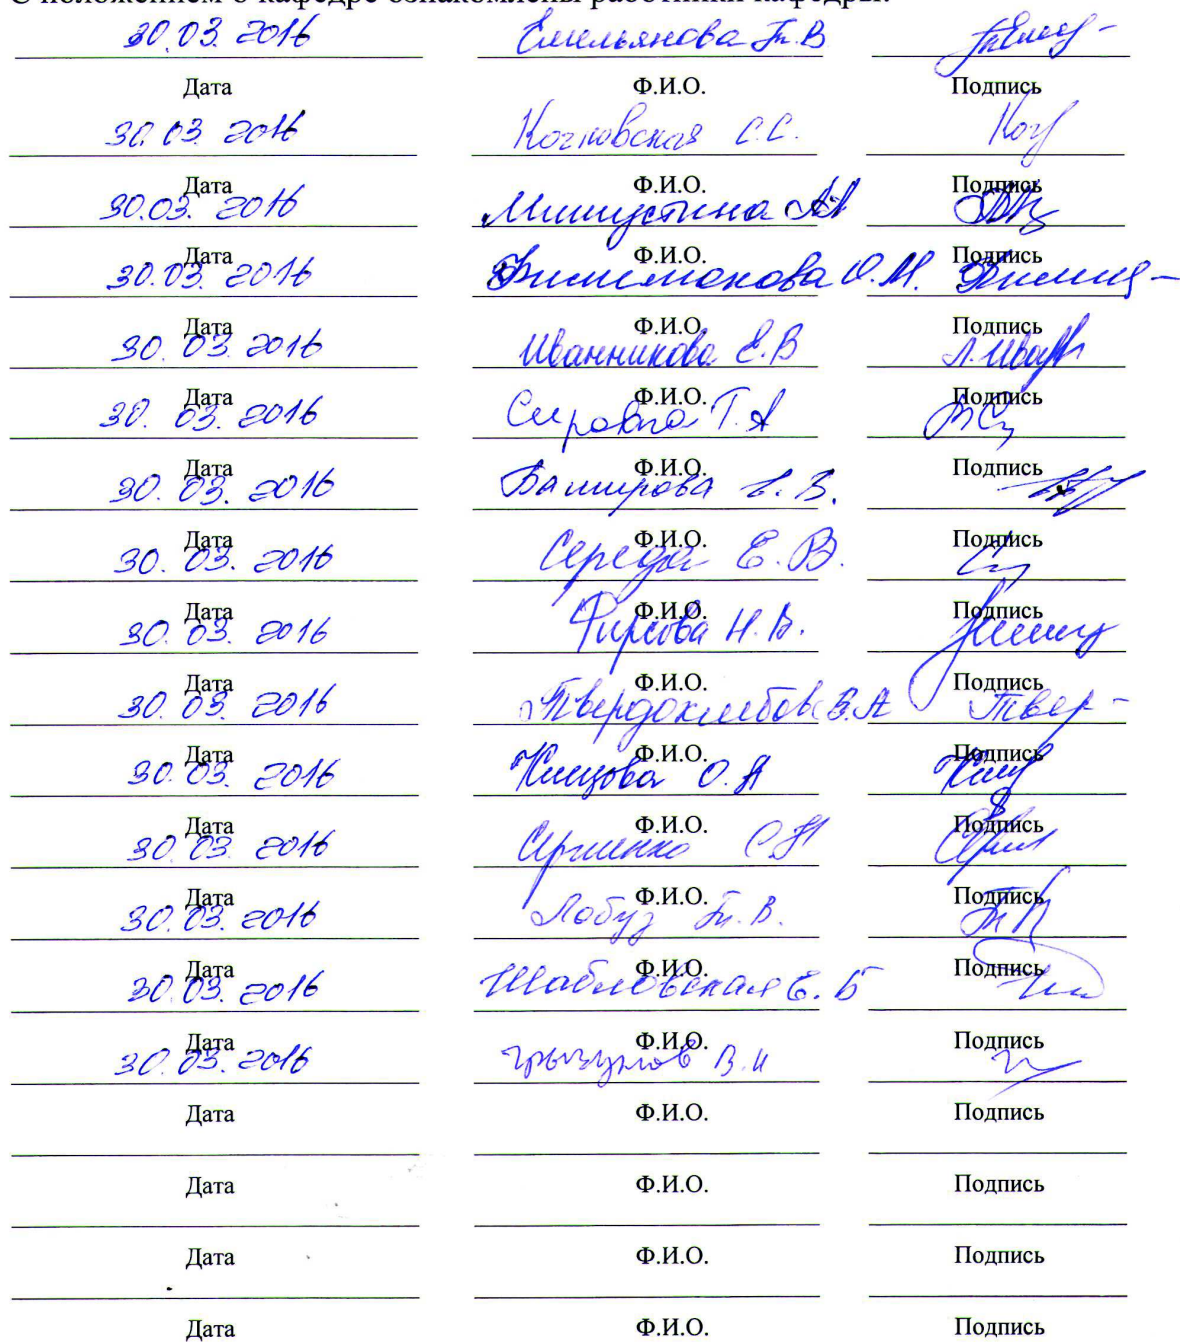 С положением о кафедре ознакомлены работники кафедры:
30.03.2016 Емельянова Т.В
Дата Ф.И.О. Подпись
30.03.2016 С.С.
Дата Ф.И.О. Подпись
30.03.2016 Мишустина
Дата Ф.И.О. Подпись
30.03.2016 Филимонова О.М.
Дата Ф.И.О. Подпись
30.03.2016 Иванникова Е.В
Дата Ф.И.О. Подпись
30.03.2016 Т.А
Дата Ф.И.О. Подпись
30.03.2016 Баширова В.
Дата Ф.И.О. Подпись
30.03.2016 Середа Е.В.
Дата Ф.И.О. Подпись
30.03.2016 Фирсова Н.В.
Дата Ф.И.О. Подпись
30.03.2016 Твердохлебова В.А Твер-
Дата Ф.И.О. Подпись
30.03.2016 О.А
Дата Ф.И.О. Подпись
30.03.2016 Сергиенко
Дата Ф.И.О. Подпись
30.03.2016 Лобуз Т.В.
Дата Ф.И.О. Подпись
30.03.2016 Шабловская Е.Б
Дата Ф.И.О. Подпись
30.03.2016 Грызунов В.И
Дата Ф.И.О. Подпись
Дата Ф.И.О. Подпись
Дата Ф.И.О. Подпись
Дата Ф.И.О. Подпись